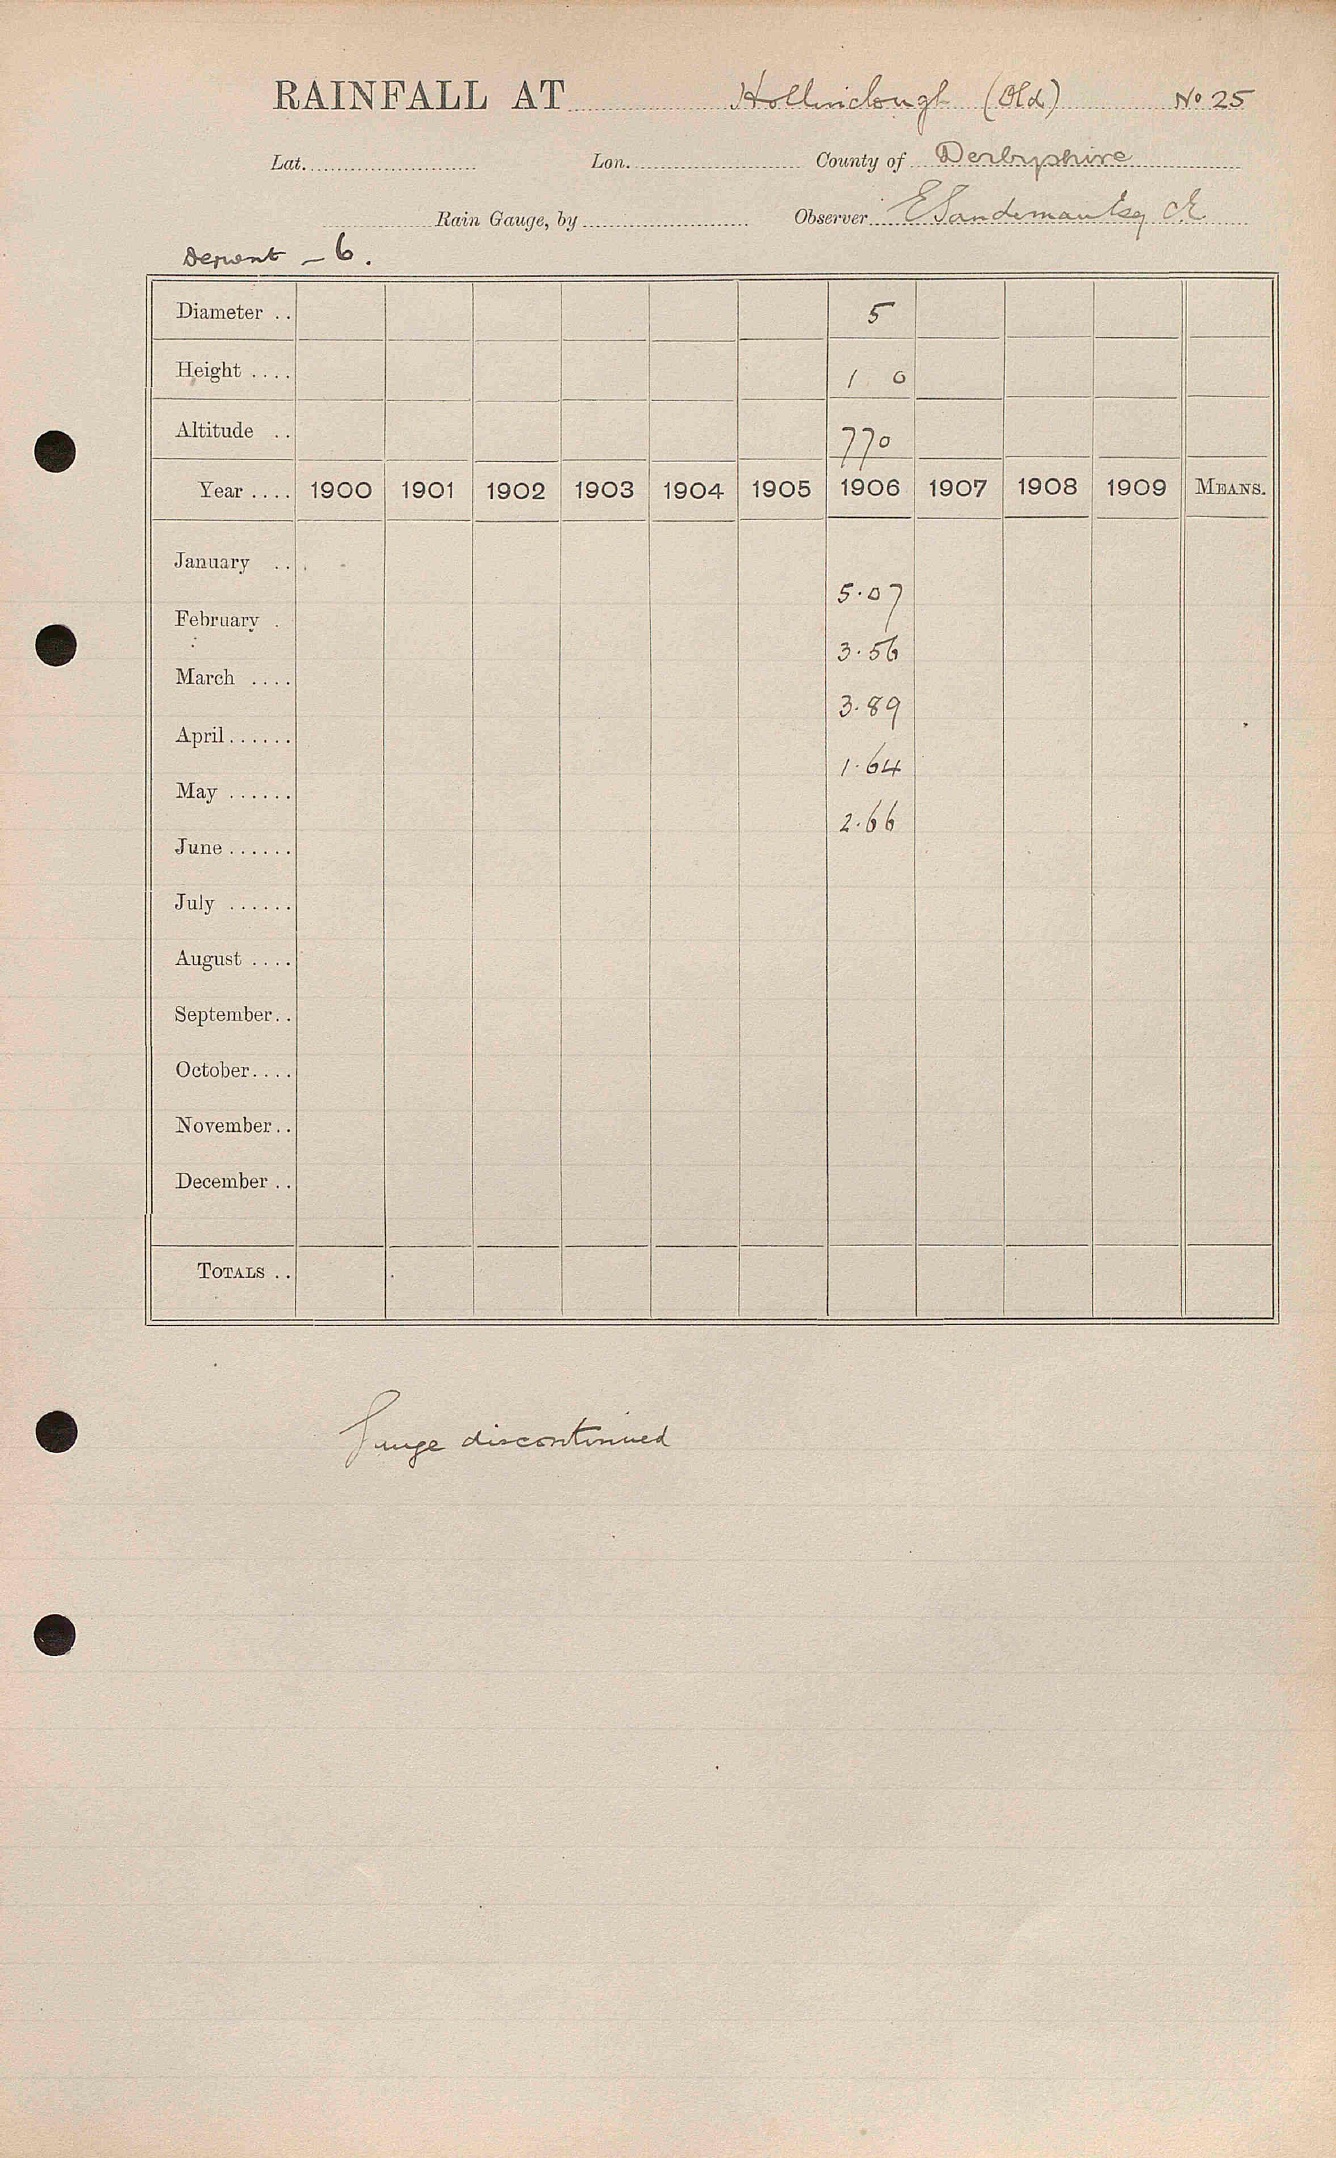 RAINFALL AT Hollinclough (Old) No 25
Lat. Lon. County of Derbyshire
Rain Gauge, by Observer E Sandeman Esq CE
Derwent - 6.
Diameter .. 5
Height .... 1 0
Altitude .. 770
Year .... 1900 1901 1902 1903 1904 1905 1906 1907 1908 1909 MEANS.
January ..
5.07
February .
3.56
March ....
3.89
April ......
1.64
May ......
2.66
June ......
July ......
August ....
September ..
October ....
November ..
December ..
TOTALS ..
Gauge discontinued